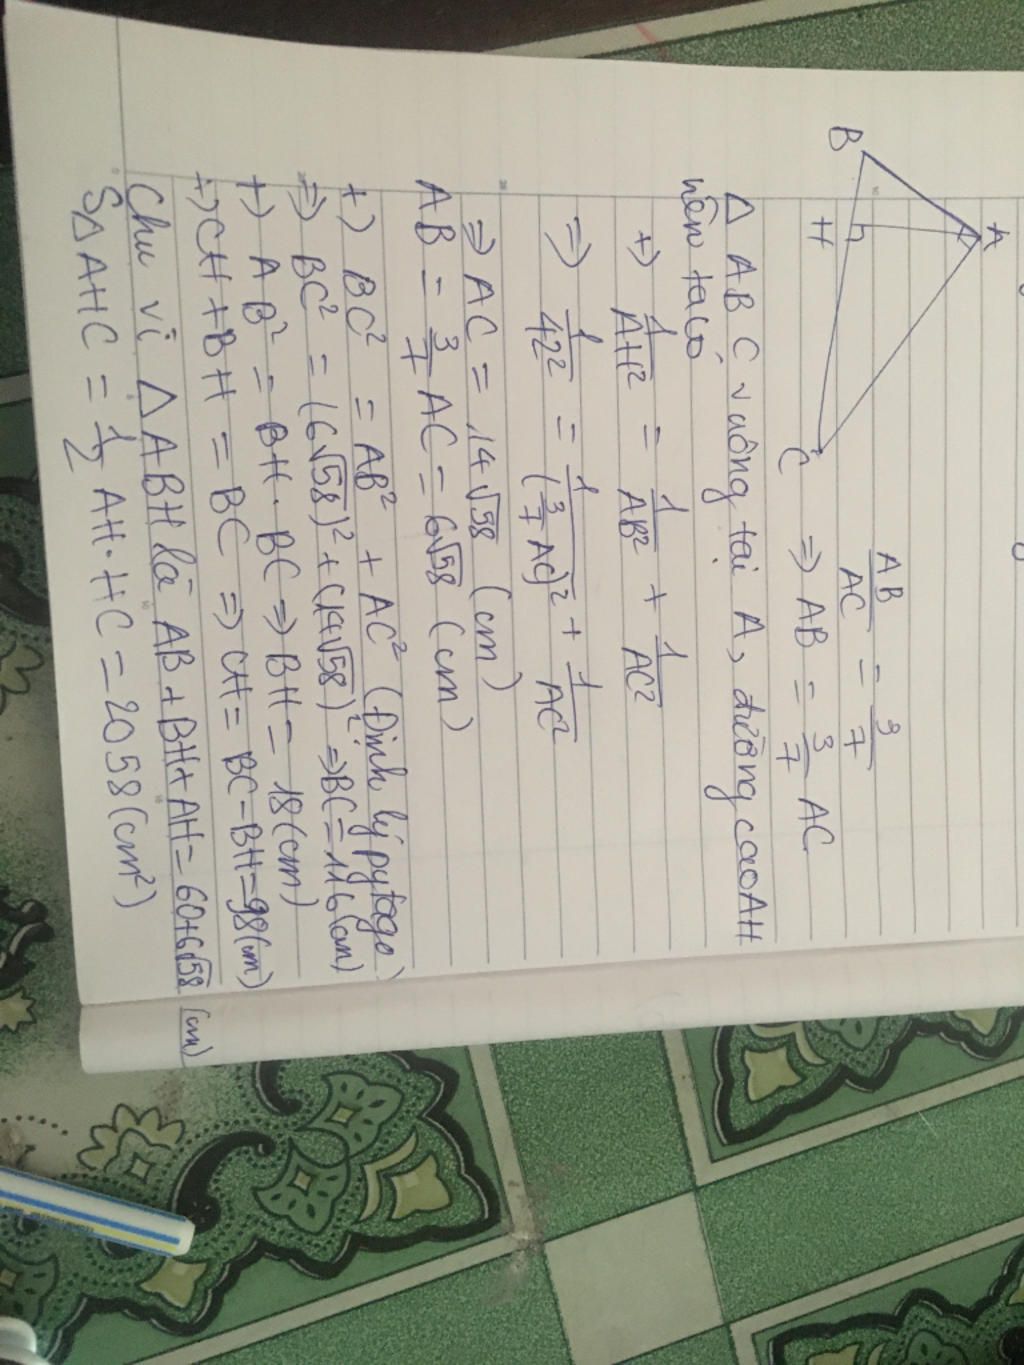 A
B
H
C
AB/AC = 3/7
⇒ AB = 3/7 AC
Δ ABC vuông tại A, đường cao AH
nên ta có
+) 1/AH² = 1/AB² + 1/AC²
⇒ 1/42² = 1/(3/7 AC)² + 1/AC²
⇒ AC = 14√58 (cm)
AB = 3/7 AC = 6√58 (cm)
+) BC² = AB² + AC² (Định lý pytago)
⇒ BC² = (6√58)² + (14√58)² ⇒ BC = 116 (cm)
+) AB² = BH . BC ⇒ BH = 18 (cm)
+) CH + BH = BC ⇒ CH = BC - BH = 98 (cm)
Chu vi Δ ABH là AB + BH + AH = 60 + 6√58 (cm)
SΔ AHC = 1/2 AH . HC = 2058 (cm²)